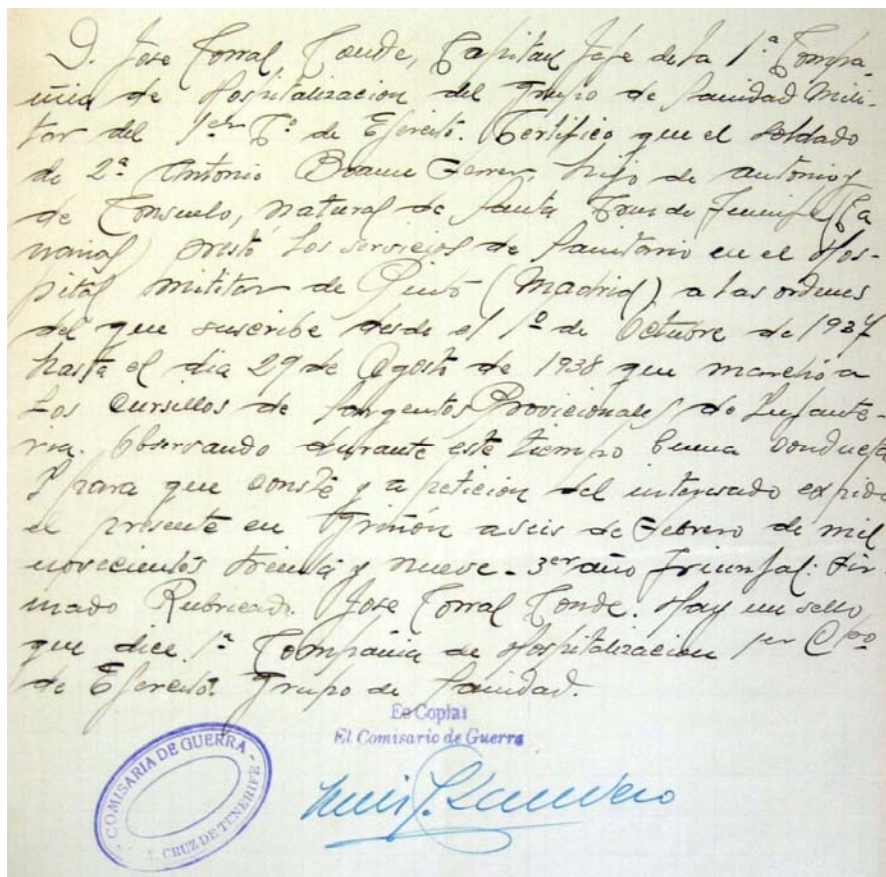 D. Jose Corral Conde, Capitan Jefe de la 1.ª Compa-
ñia de Hospitalizacion del Grupo de Sanidad Mili-
tar del 1er Cº de Ejercito. Certifico que el soldado
de 2ª Antonio Ferrer, hijo de Antonio y
de Consuelo, natural de Santa Cruz de Tenerife (Ca
narias) prestó los servicios de Sanitario en el Hos-
pital Militar de Pinto (Madrid) a las ordenes
del que suscribe desde el 1º de Octubre de 1937
hasta el dia 29 de Agosto de 1938 que marchó a
los Cursillos de Sargentos Provicionales de Infante-
ria. Observando durante este tiempo buena conducta
Y para que conste y a peticion del interesado expido
el presente en Griñón a seis de Febrero de mil
novecientos treinta y nueve - 3er año Triunfal: Fir-
mado Rubricado. Jose Corral Conde. Hay un sello
que dice 1ª Compañia de Hospitalizacion 1er Cpo
de Ejercito. Grupo de Sanidad.
Es Copia:
El Comisario de Guerra
COMISARIA DE GUERRA
CRUZ DE TENERIFE